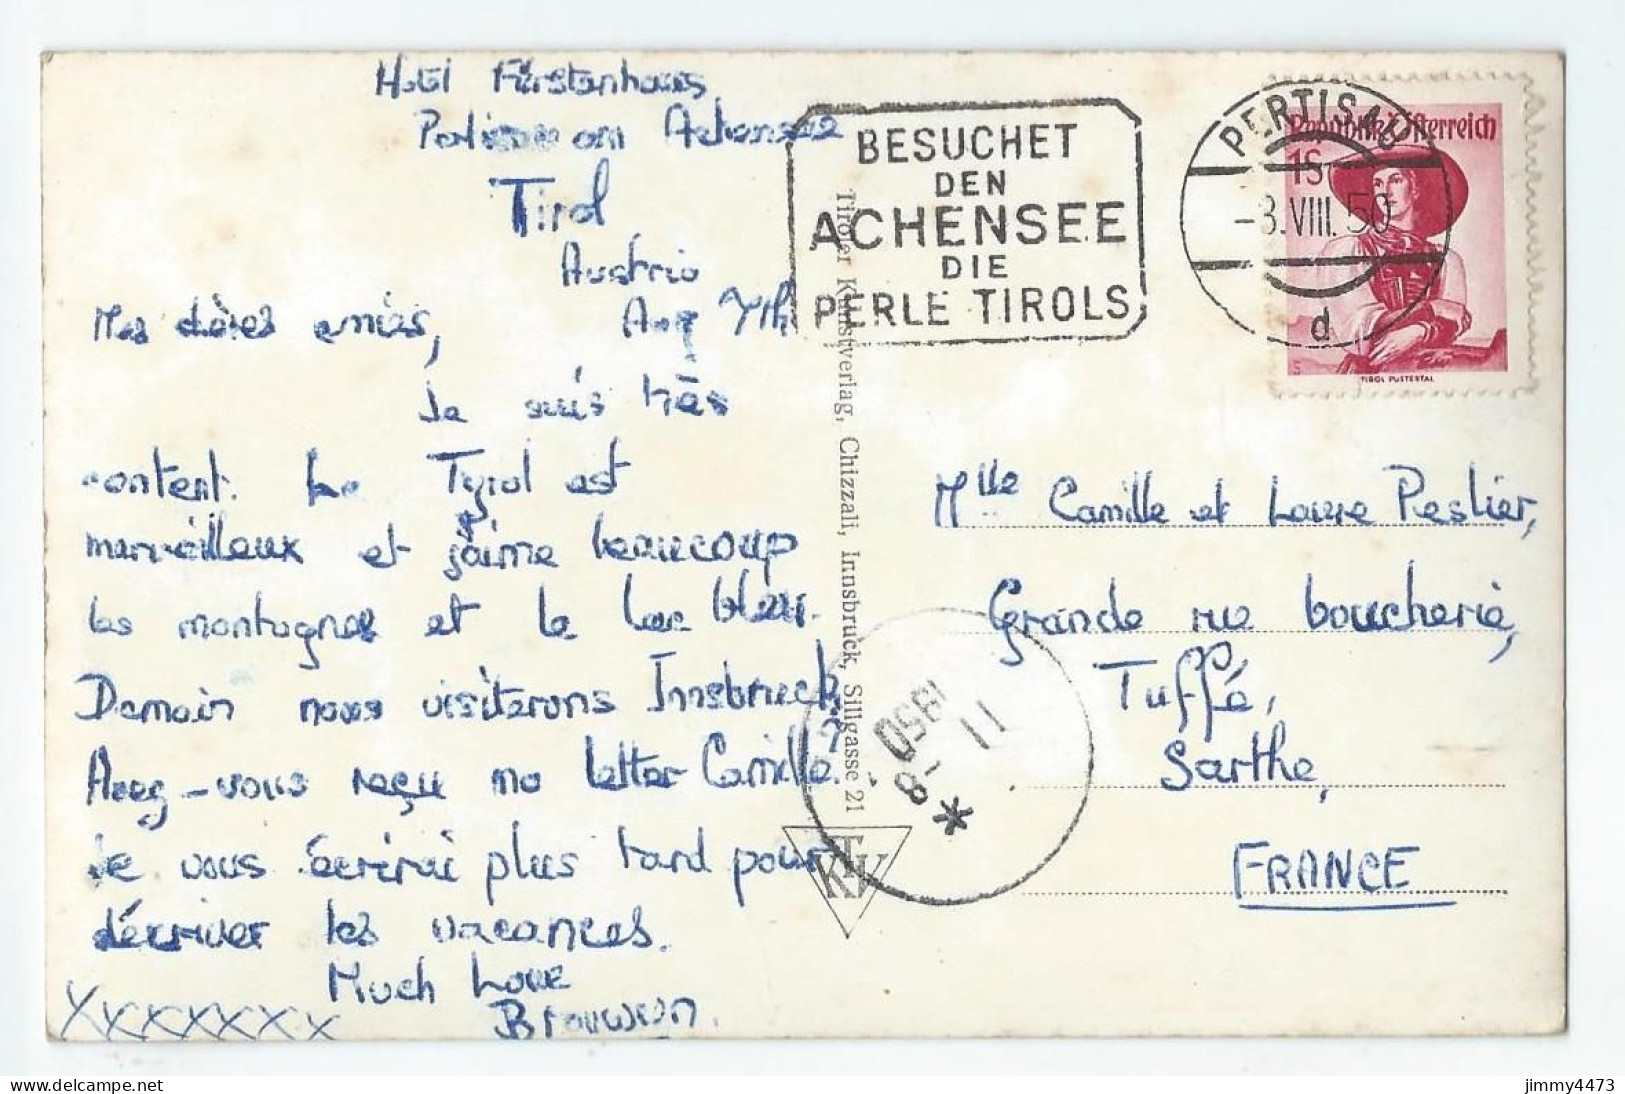 Hotel Fürstenhaus,
Pertisau am Achensee
Tirol
Austria
Aug 7th
Mes chères amies,
Je suis très
content. Le Tyrol est
merveilleux et j'aime beaucoup
les montagnes et le lac bleu.
Demain nous visiterons Innsbruck.
Avez-vous reçu ma letter Camille?
Je vous écrirai plus tard pour
décriver les vacances.
Much Love
Bronwen.
XXXXXXXX
BESUCHET
DEN
ACHENSEE
DIE
PERLE TIROLS
PERTISAU
-8.VIII.50
d
Republik Österreich
1S
S
TIROL PUSTERTAL
Tiroler Kunstverlag, Chizzali, Innsbruck, Sillgasse 21
KTV
Mlle Camille et Laure Peslier,
Grande rue boucherie,
Tuffé,
Sarthe,
FRANCE
11
-8
1950
*
jimmy4473
www.delcampe.net